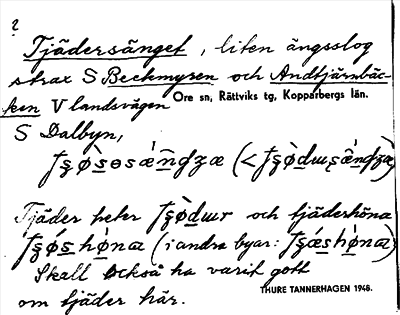 ?
Tjädersänget, liten ängsslog
strax S Beckmyren och Andtjärnbäc-
ken V landsvägen
Ore sn, Rättviks tg, Kopparbergs län.
S Dalbyn,
Tjäder heter och tjäderhöna
(i andra byar:
Skall också ha varit gott
om tjäder här.
THURE TANNERHAGEN 1948.